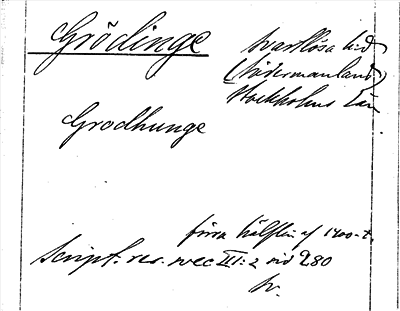 Grödinge
Svartlösa hd
(Södermanland)
Stockholms län
Grodhunge
förra hälften af 1400-t.
Script. rer. svec III:2 sid 280